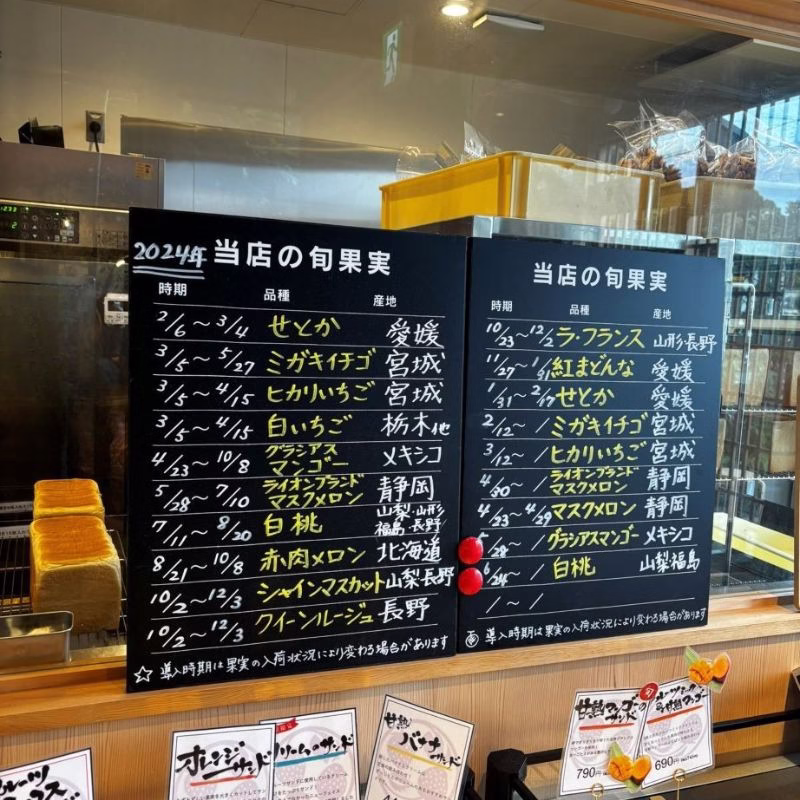 2024年 当店の旬果実
時期 品種 産地
2/6～3/4 せとか 愛媛
3/5～5/27 ミガキイチゴ 宮城
3/5～4/15 ヒカリいちご 宮城
3/5～4/15 白いちご 栃木他
4/23～10/8 グラシアスマンゴー メキシコ
5/28～7/10 ライオンブランドマスクメロン 静岡
7/11～8/20 白桃 山梨・山形福島・長野
8/21～10/8 赤肉メロン 北海道
10/2～12/3 シャインマスカット 山梨長野
10/2～12/3 クイーンルージュ 長野
☆ 導入時期は果実の入荷状況により変わる場合があります
当店の旬果実
時期 品種 産地
10/23～12/2 ラ・フランス 山形長野
11/27～1/31 紅まどんな 愛媛
1/31～2/17 せとか 愛媛
2/12～/ ミガキイチゴ 宮城
3/12～/ ヒカリいちご 宮城
4/30～/ ライオンブランドマスクメロン 静岡
4/23～4/29 マスクメロン 静岡
5/28～/ グラシアスマンゴー メキシコ
6/24～/ 白桃 山梨福島
/～/
導入時期は果実の入荷状況により変わる場合があります
オレンジサンド
クリームのサンド
甘熟バナナサンド
甘熟マンゴーのサンド
790円
旬
690円